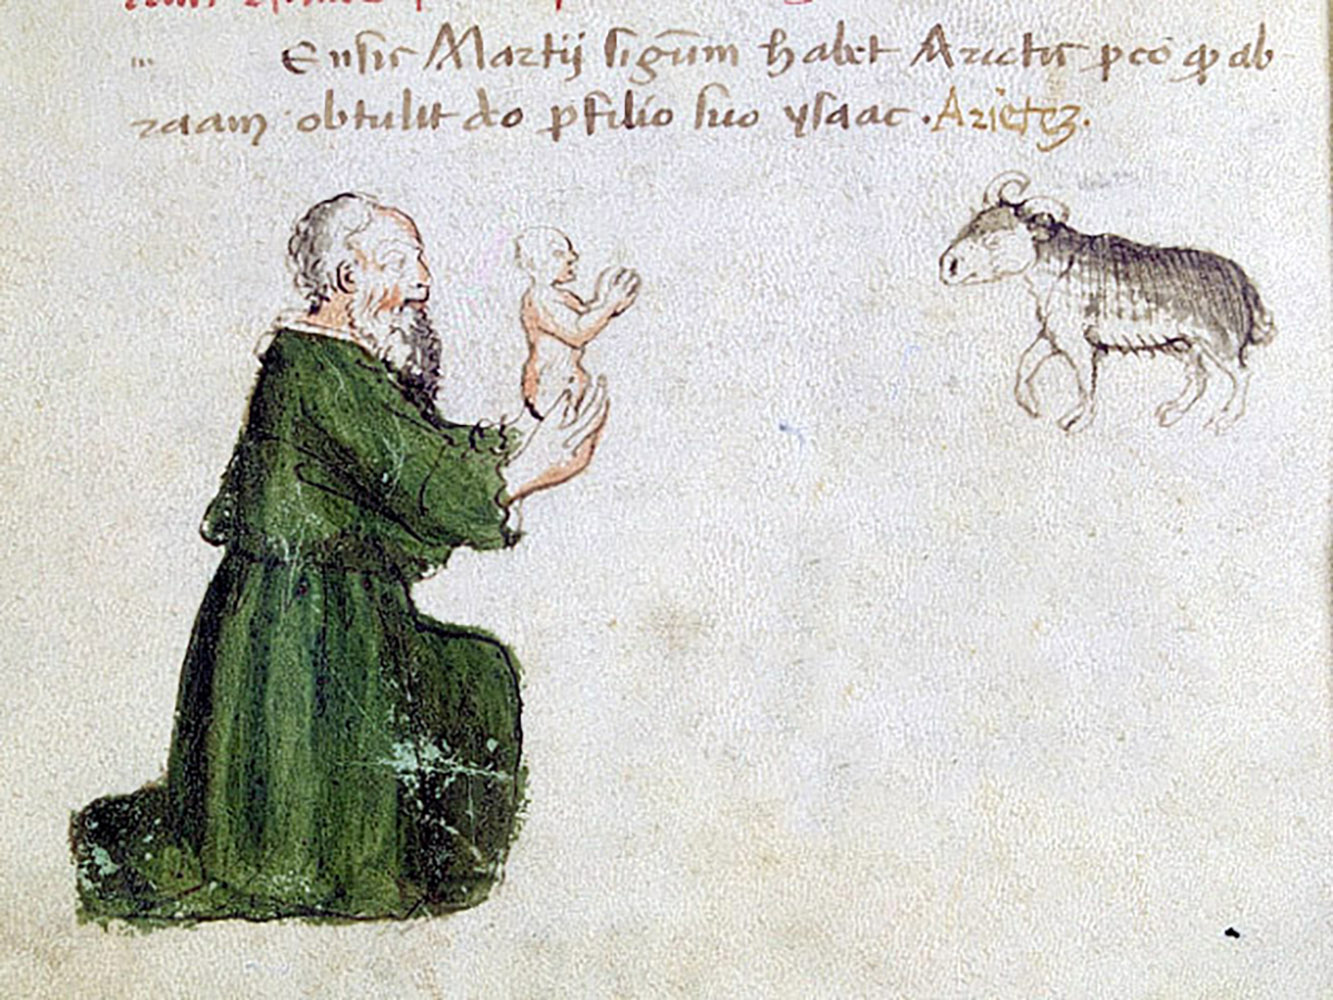 Ensis Martij signum habet Arietis pco qp ab
raam obtulit do p filio suo ysaac . Arietez .